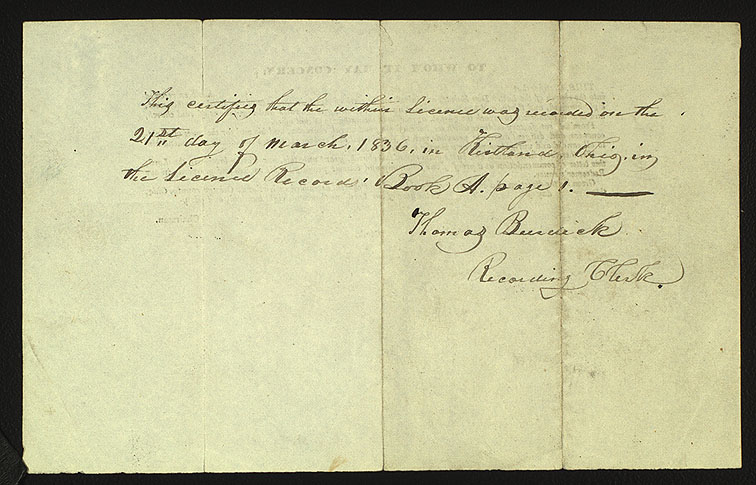 This certifies that the within Licence was recorded on the
21st day of March, 1836, in Kirtland, Ohio, in
the Licence Records, Book A. page 1.
Thomas Burdick
Recording Clerk.
TO WHOM IT MAY CONCERN: